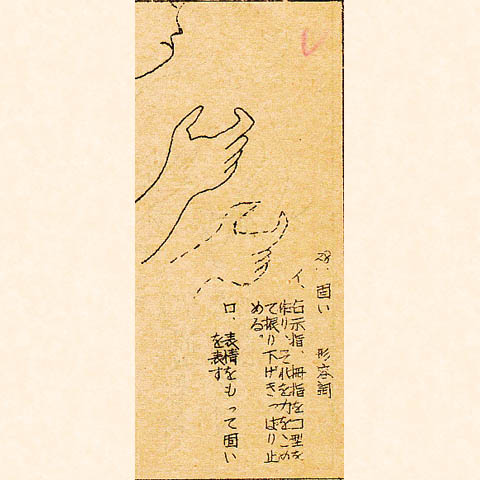 28、固い 形容詞
イ、右示指、拇指をコ型を
作り、それを力をこめ
て振り下げきっぱり止
める。
ロ、表情をもって固い
を表す